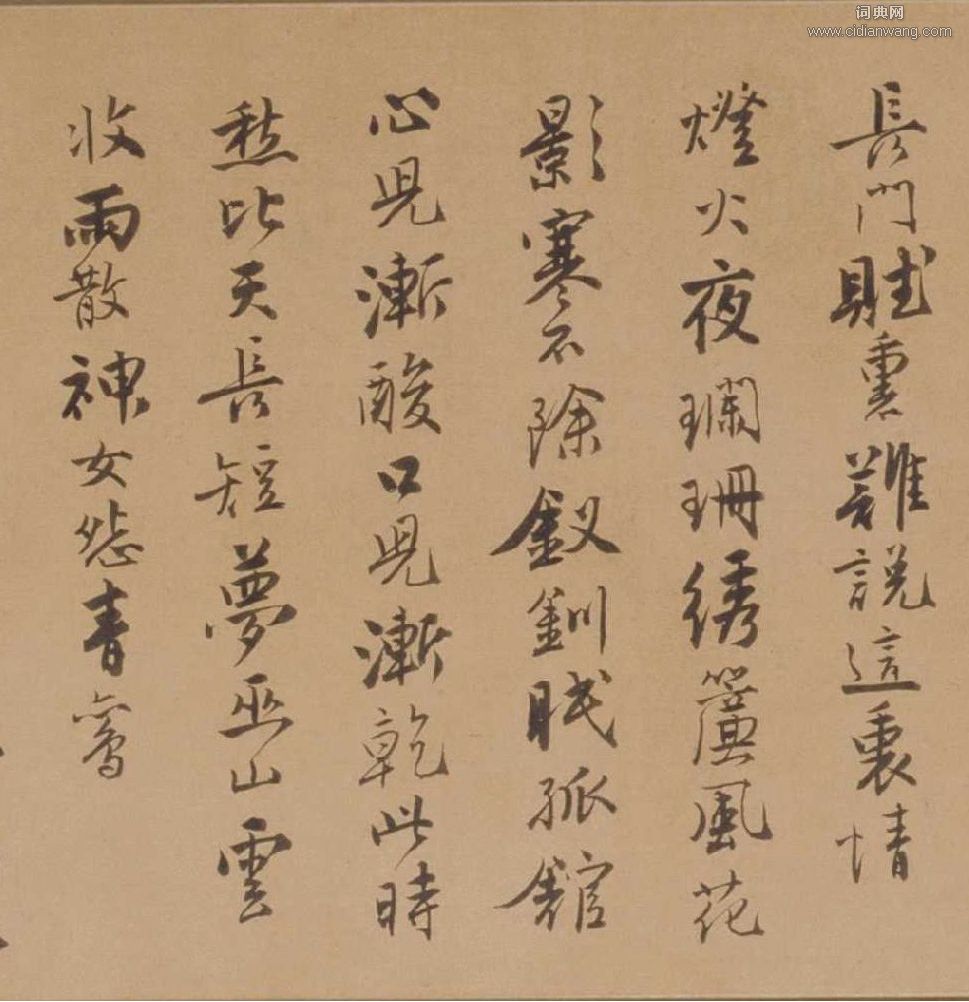 词典网
www.cidianwang.com
長門賦裏難說這裏情
燈火夜瓓珊綉簾風花
影寒不除釵釧眠孤館
心兒漸酸口兒漸乾此時
愁比天長短夢巫山雲
收雨散神女怨青鸞